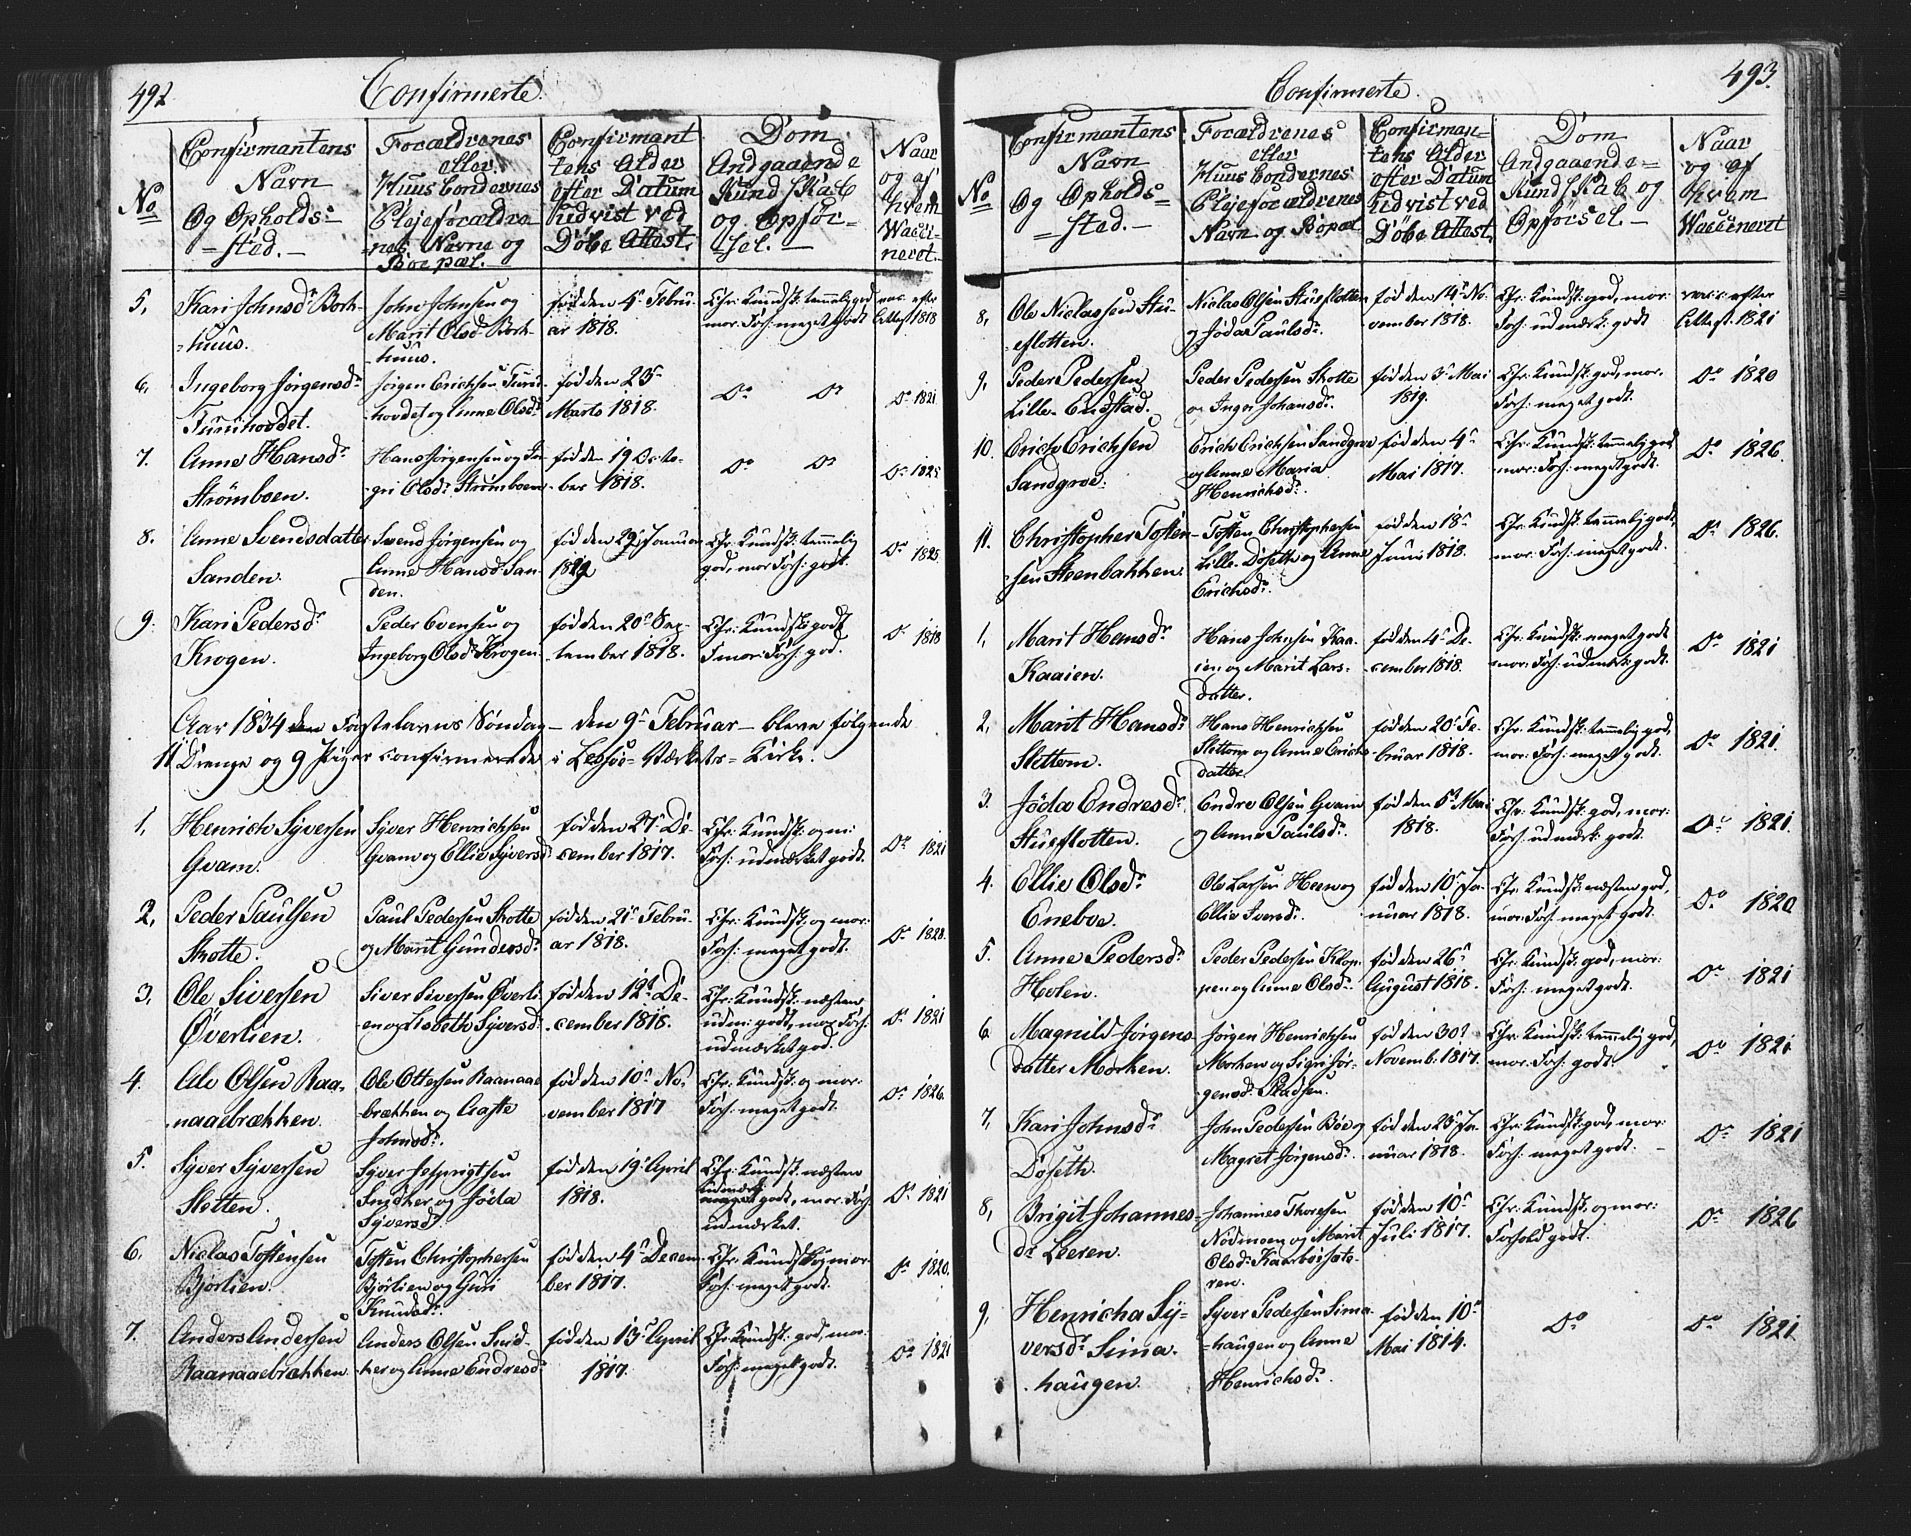 492
Confirmerte.
No
Confirmantens
Navn
Og Opholds-
sted.
Forældrenes
eller
Huusbondernes
Plejeforældre-
nes Navne og
Boepæl.
Confirmant
tens Alder
efter Datum
hidvist ved
Døbe Attest.
Dom
Andgaaende
Kundskab
og Opfør-
sel.
Naar
og af
hvem
Wacci-
neret.
5, Kari Johnsdr Borh-
huus.
John Johnsen og
Marit Olsdr Borh-
huus.
fød den 4de Febru-
ar 1818.
Chr: Kundsk: temmelig god
mor: Forh: meget godt
vac: efter
Attest 1818
6, Ingeborg Jørgensdr
Tuvehovdet.
Jørgen Erichsen
hovdet og Anne Olsdr
fød den 23de
Marts 1818.
Do Do
Do 1821
7. Anne Hansdr
Strømboen.
Hans Jørgensen og In-
gri Olsdr Strømboen
fød den 19 Octo-
ber 1818.
Do Do
Do 1825
8. Anne Svendsdatter
Sanden.
Svend Jørgensen og
Anne Hansdr San-
den.
fød den 29 Januar
1819
Chr: Kundsk: temmelig
god, mor Forh: godt.
Do 1825
9. Kari Pedersdr
Krogen.
Peder Evensen og
Ingeborg Olsdr Krogen
fød den 20de Sep-
tember 1818.
Chr: Kundsk: godt
mor: Forh: god.
Do 1818
Aar 1834 den Fastelavns Søndag – den 9de Februar – bleve følgende
11 Drenge og 9 Piger confirmerede i Lessøe-Værkets-Kirke.
1, Henrich Syversen
Gvam.
Syver Henrichsen
Gvam og Ellie Syversdr
fød den 27de De-
cember 1817.
Chr: Kundsk: og m:
Forh: udmærket godt.
Do 1821
2, Peder Paulsen
Skotte.
Paul Pedersen Skotte
og Marit Gundersdr
fød den 21de Febru-
ar 1818.
Chr: Kundsk: og mor:
Forh: meget godt.
Do 1828.
3, Ole Siversen
Øverlien.
Siver Siversen Øverli-
en og Lisbeth Syversdr
fød den 12te De-
cember 1818.
Chr: Kundsk: næsten
udm: godt, mor Forh:
udmærket god.
Do 1821
4. Ole Olsen Raa-
naaebrækken.
Ole Ottersen Raanaae
brækken og Aaste
Johnsdr.
fød den 10de No-
vember 1817
Chr: Kundsk: og mor:
Forh: meget godt.
Do 1826.
5. Syver Syversen
Sletten.
Syver
og Jøda
Syversdr
fød den 19de April
1818.
Chr: Kundsk: næsten
udmærk: godt, mor: Forh:
udmærket.
Do 1821
6. Niclas Toftensen
Bjørlien.
Toften Christophersen
Bjørlien og Guri
Knudsdr.
fød den 4de Decem-
ber 1817.
Chr: Kundsk: og mor:
Forh: meget godt.
Do 1820.
7. Anders Andersen
Raanaaebrækken.
Anders Olsen
og Anne Endresdr
fød den 13de April
1817.
Chr: Kundsk: god, mor:
Forh: meget godt.
Do 1821
493.
Confirmerte.
No
Confirmantens
Navn
Og Opholds-
sted.
Forældrenes
eller
Huusbondernes
Plejeforældrenes
Navn og Bopæl
Confirman-
tens Alder
efter Datum
hidvist ved
Døbe Attest.
Dom
Andgaaende
Kundskab og
Opførsel.
Naar
og af
hvem
Waccineret
8, Ole Niclassen Stu-
eflotten.
Niclas Olsen Stueflotten
og Jøda Paulsdr
fød den 14de No-
vember 1818.
Chr: Kundsk: god, mor:
Forh: udmærk: godt
vacc: efter
Attest. 1821
9, Peder Pedersen
Lille-Endstad.
Peder Pedersen Skotte
og Inger Johansdr.
fød den 3de Mai
1819.
Chr: Kundsk: god, mor.
Forh: meget godt.
Do 1820
10. Erich Erichsen
Sandgroe.
Erich Erichsen Sandgroe
og Anne Maria
Henrichsdr.
fød den 4de
Mai 1817.
Chr: Kundsk: temmelig god
mor: Forh: meget godt.
Do 1826.
11. Christopher Toften-
sen Steenbakken.
Toften Christophersen
Lille-Døseth og Anne
Erichsdr.
fød den 18de
Juni 1818.
Chr: Kundsk: temmelig god,
mor: Forh: meget godt.
Do 1826.
1, Marit Hansdr
Kaaien.
Hans Johnsen Kaa-
ien og Marit Lars-
datter.
fød den 4de De-
cember 1818.
Chr: Kundsk: meget godt
mor: Forh: udmærk: godt.
Do 1821
2, Marit Hansdr
Slettom.
Hans Henrichsen
Slettom og Anne Erichs
datter
fød den 20de Fe-
bruar 1818.
Chr: Kundsk: temmelig god,
mor: Forh: meget godt.
Do 1821.
3. Jøda Endresdr
Stueflotten.
Endre Olsen Gvam
og Anne Paulsdr.
fød den 6te Mai
1818.
Chr: Kundsk: god, mor:
Forh: udmærk: godt.
Do 1821.
4. Ellie Olsdr
Eneboe.
Ole Larsen Heen og
Ellie Iversdr.
fød den 10de Ja-
nuar 1818.
Chr: Kundsk: næsten god,
mor: Forh: meget godt.
Do 1820
5. Anne Pedersdr
Holen.
Peder Pedersen Klop-
pen og Anne Olsdr.
fød den 26de
August 1818.
Chr: Kundsk: god, mor:
Forh: meget godt.
Do 1821
6. Magnild Jørgens-
datter Morken.
Jørgen Henrichsen
Morken og Sigri Jør-
gensdr
fød den 30te
Novemb: 1817.
Chr: Kundsk: temmelig god,
mor: Forh: godt.
Do 1821
7, Kari Johnsdr
Døseth.
John Pedersen Bøe og
Magret Jørgensdr.
fød den 23de Ja-
nuar 1818.
Chr: Kundsk: god, mor:
Forh: meget godt.
Do 1821
8, Brigit Johannes-
dr Leeren.
Johannes Thoresen
Nordmoen og Marit
Olsdr
fød den 10de
Juli 1817.
Chr: Kundsk: og mor:
Forhold godt.
Do 1826
9, Henricha Sy-
versdr Sima-
haugen.
Syver Pedersen Sima-
haugen og Anne
Henrichsdr.
fød den 10de
Mai 1814.
Do
Do 1821